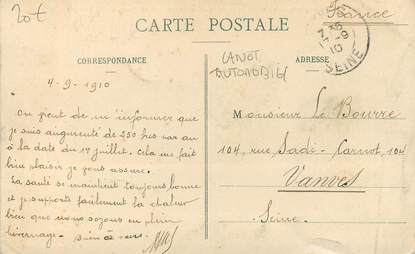 20f
France
CARTE POSTALE
CORRESPONDANCE
CANOT
AUTOMOBILE
ADRESSE
7 35
17 - 9
10
SEINE
4-9-1910
On vient de m'informer que
je suis augmenté de 250 frs par an
à la date du 14 juillet. Cela me fait
bien plaisir je vous assure.
La santé se maintient toujours bonne
et je supporte facilement la chaleur
bien que nous soyons en plein
hivernage. Bien à vous.
Monsieur Le Bourre
104, rue Sadi-Carnot, 104
Vanves
Seine.